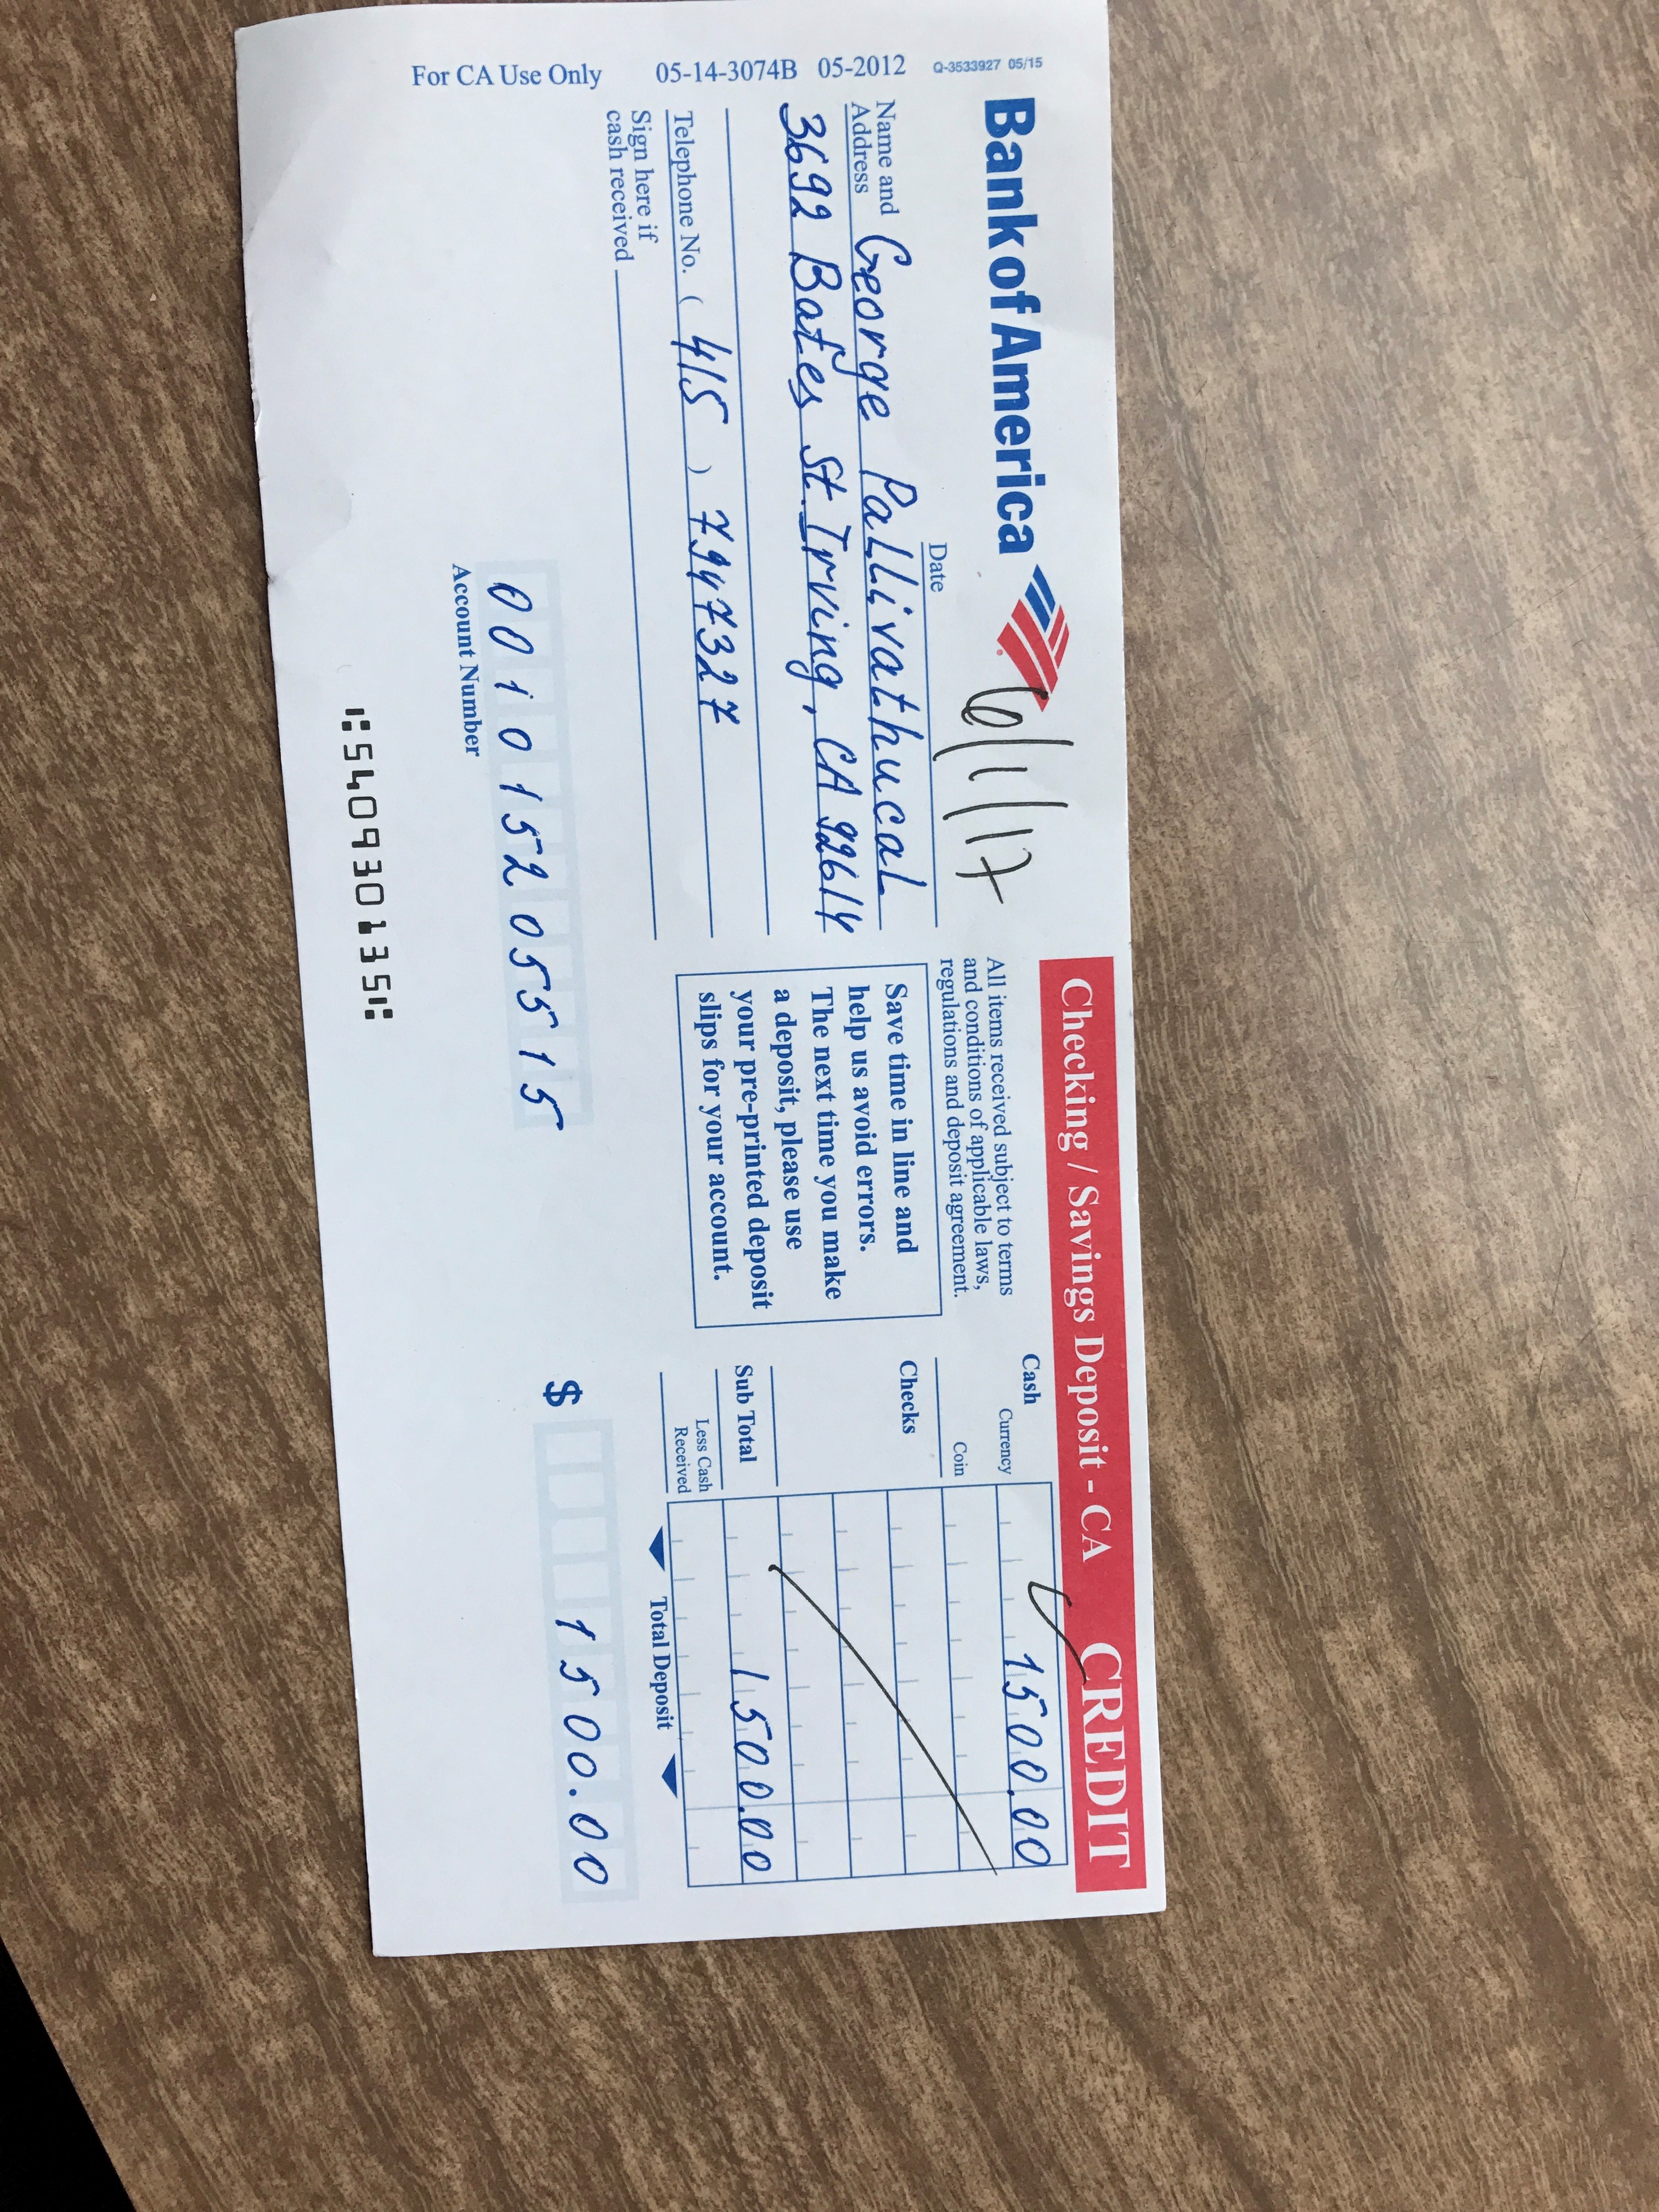 Bank of America
6/1/17
Date
Name and Address George Pallivathucal
3692 Bates St. Irving, CA 92614
Telephone No. ( 415 ) 7947327
Sign here if cash received
For CA Use Only 05-14-3074B 05-2012 Q-3533927 05/15
Checking / Savings Deposit - CA CREDIT
All items received subject to terms
and conditions of applicable laws,
regulations and deposit agreement.
Save time in line and
help us avoid errors.
The next time you make
a deposit, please use
your pre-printed deposit
slips for your account.
Cash
Currency 1500.00
Coin
Checks
Sub Total 1500.00
Less Cash
Received
Total Deposit
$ 1500.00
001015205515
Account Number
⑆540930135⑆